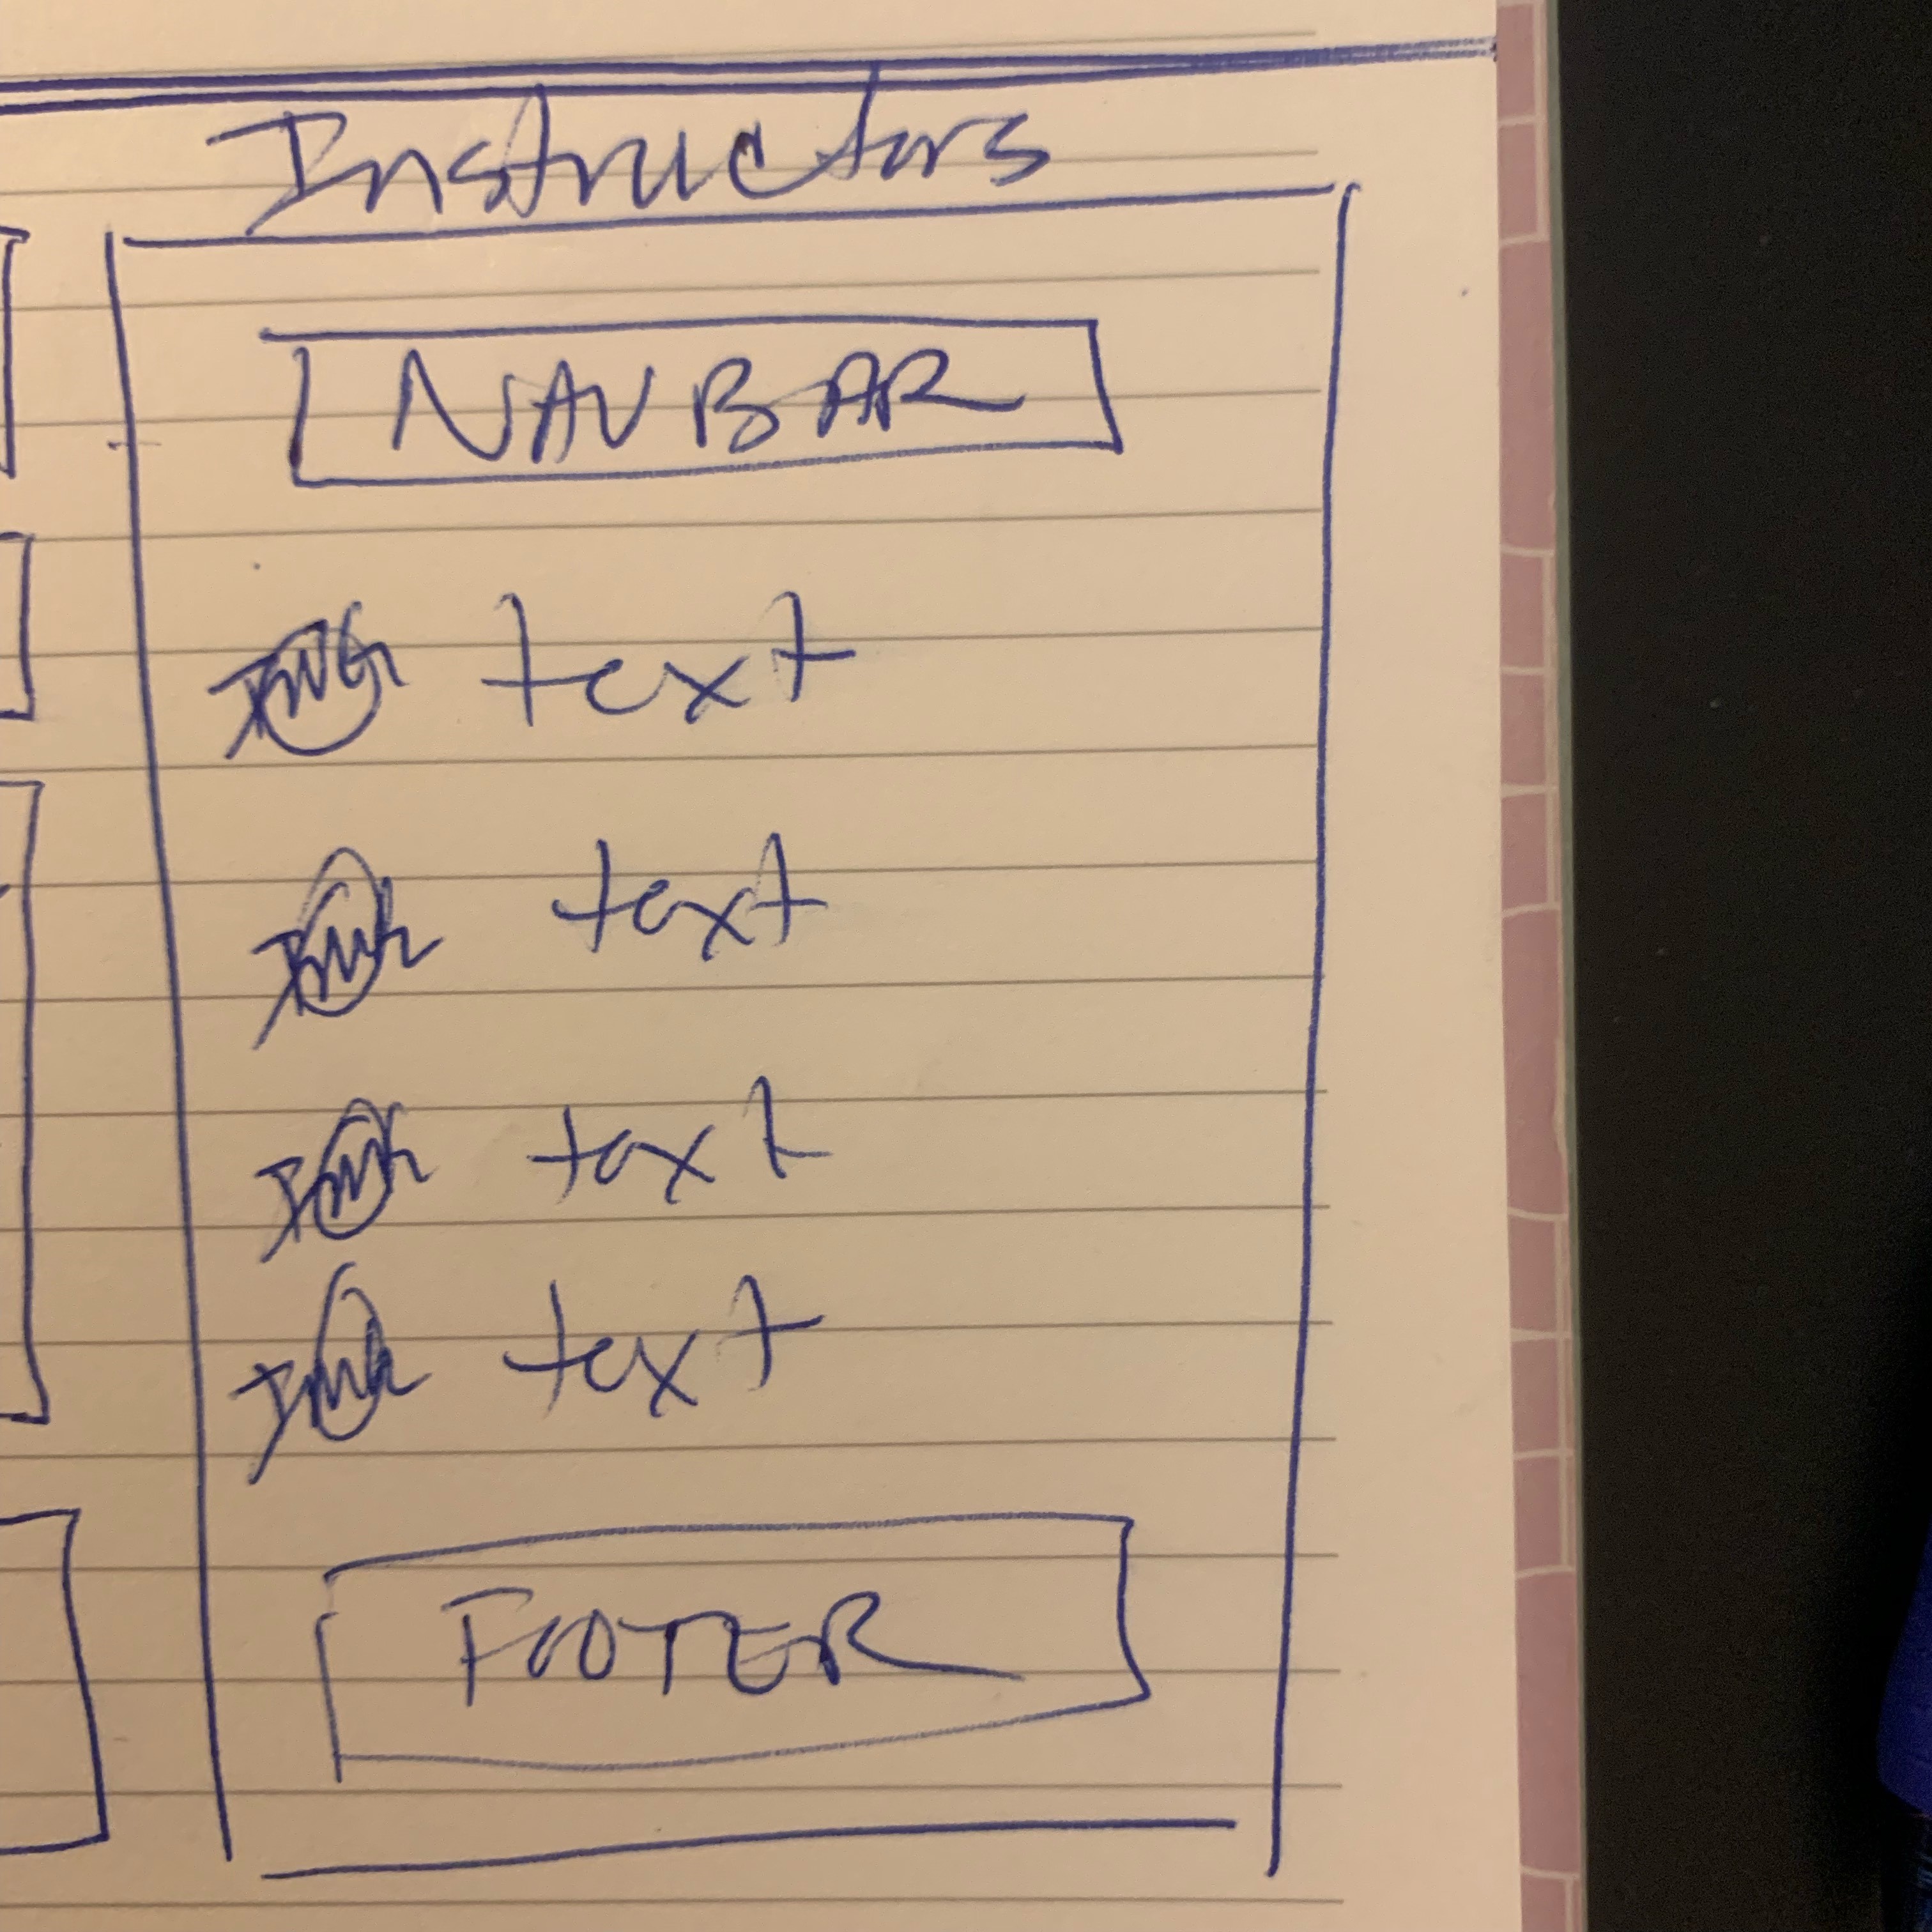 Instructors
NAVBAR
IMG text
IMG text
IMG text
IMG text
FOOTER